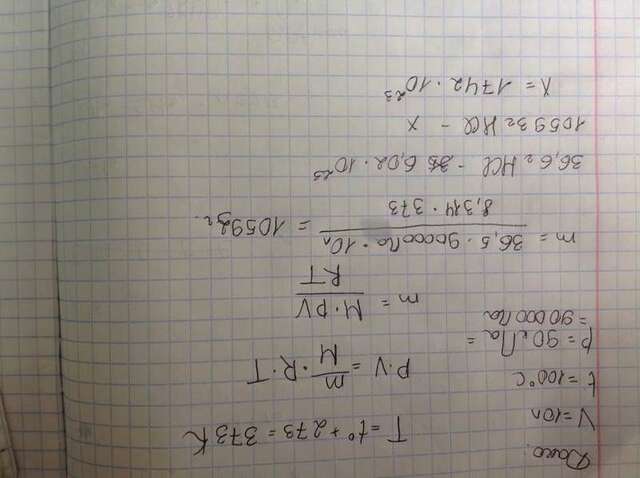 Дано:
V=10л
t=100°C
P=90кПа=
=90000Па
T=t°+273=373K
P·V=m/M·R·T
m=M·PV/RT
m=36,5·90000Па·10л/8,314·373=10593г.
36,6г HCl - 6,02·10²³
10593г HCl - x
x=1742·10²³